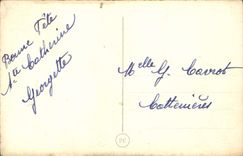 Bonne Fête
Ste Catherine
Georgette
Melle G. Carrot
Cattenières